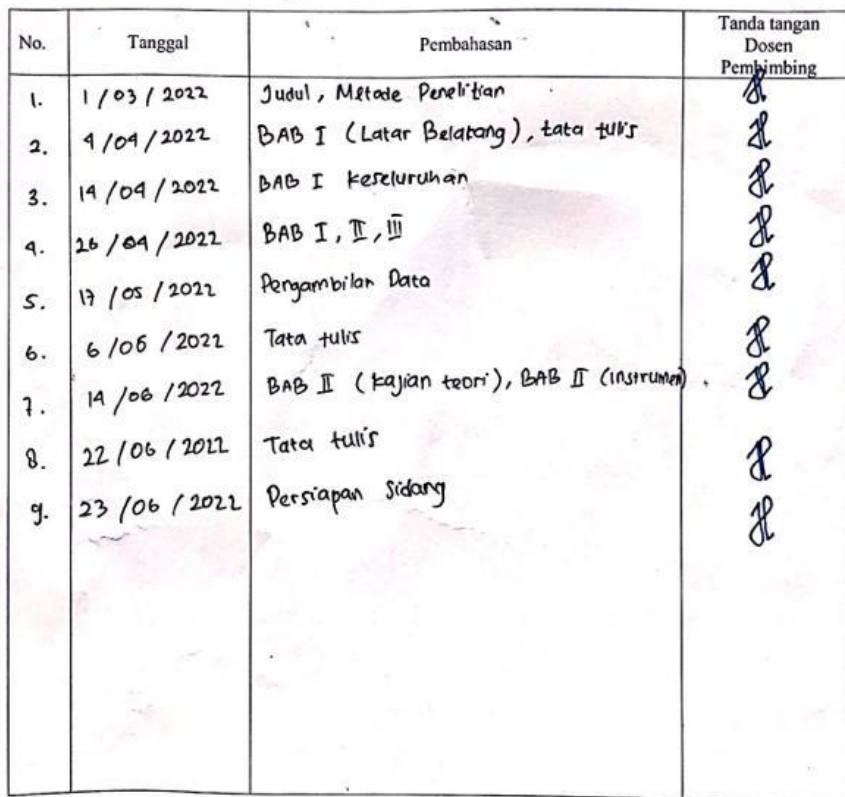 No. Tanggal Pembahasan Tanda tangan
Dosen
Pembimbing
1. 1/03/2022 Judul, Metode Penelitian
2. 4/04/2022 BAB I (Latar Belakang), tata tulis
3. 14/04/2022 BAB I keseluruhan
4. 26/04/2022 BAB I, II, III
5. 17/05/2022 Pengambilan Data
6. 6/06/2022 Tata tulis
7. 14/06/2022 BAB II (kajian teori), BAB II (instrumen).
8. 22/06/2022 Tata tulis
9. 23/06/2022 Persiapan Sidang